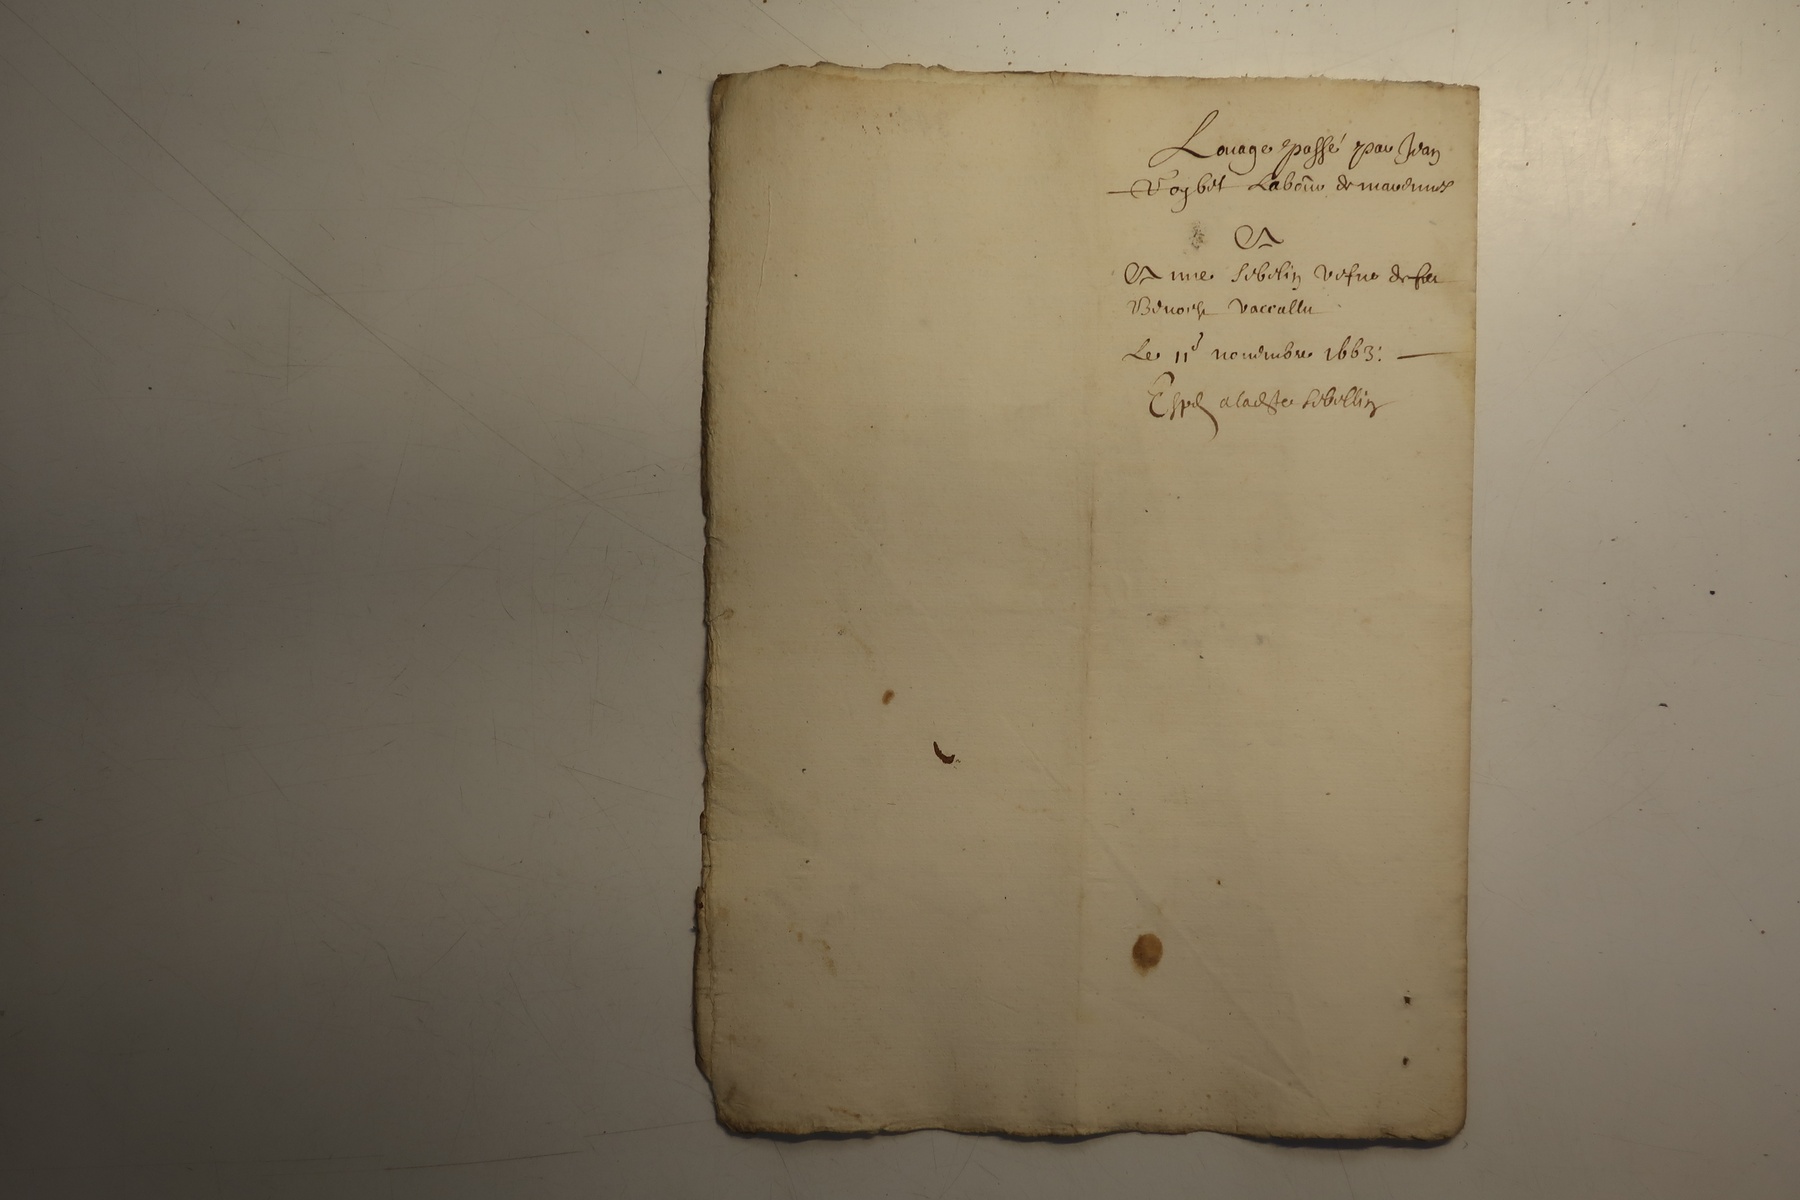 Louage passé par Jean
Voybet Laboūr de marennes
A
Anne Sebelin vefue de feu
Benoist vaccallu
Le 11e nouembre 1663:
Exped a ladste Sebellin